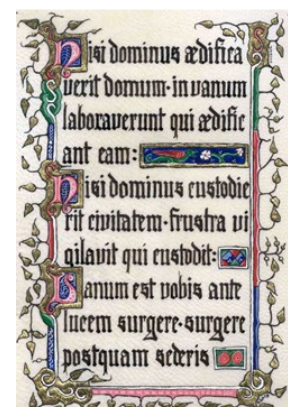 Nisi dominus ædifica
verit domum·in vanum
laboraverunt qui ædific
ant eam:
Nisi dominus custodie
rit civitatem·frustra vi
gilavit qui custodit·
Vanum est vobis ante
lucem surgere·surgere
postquam sederis